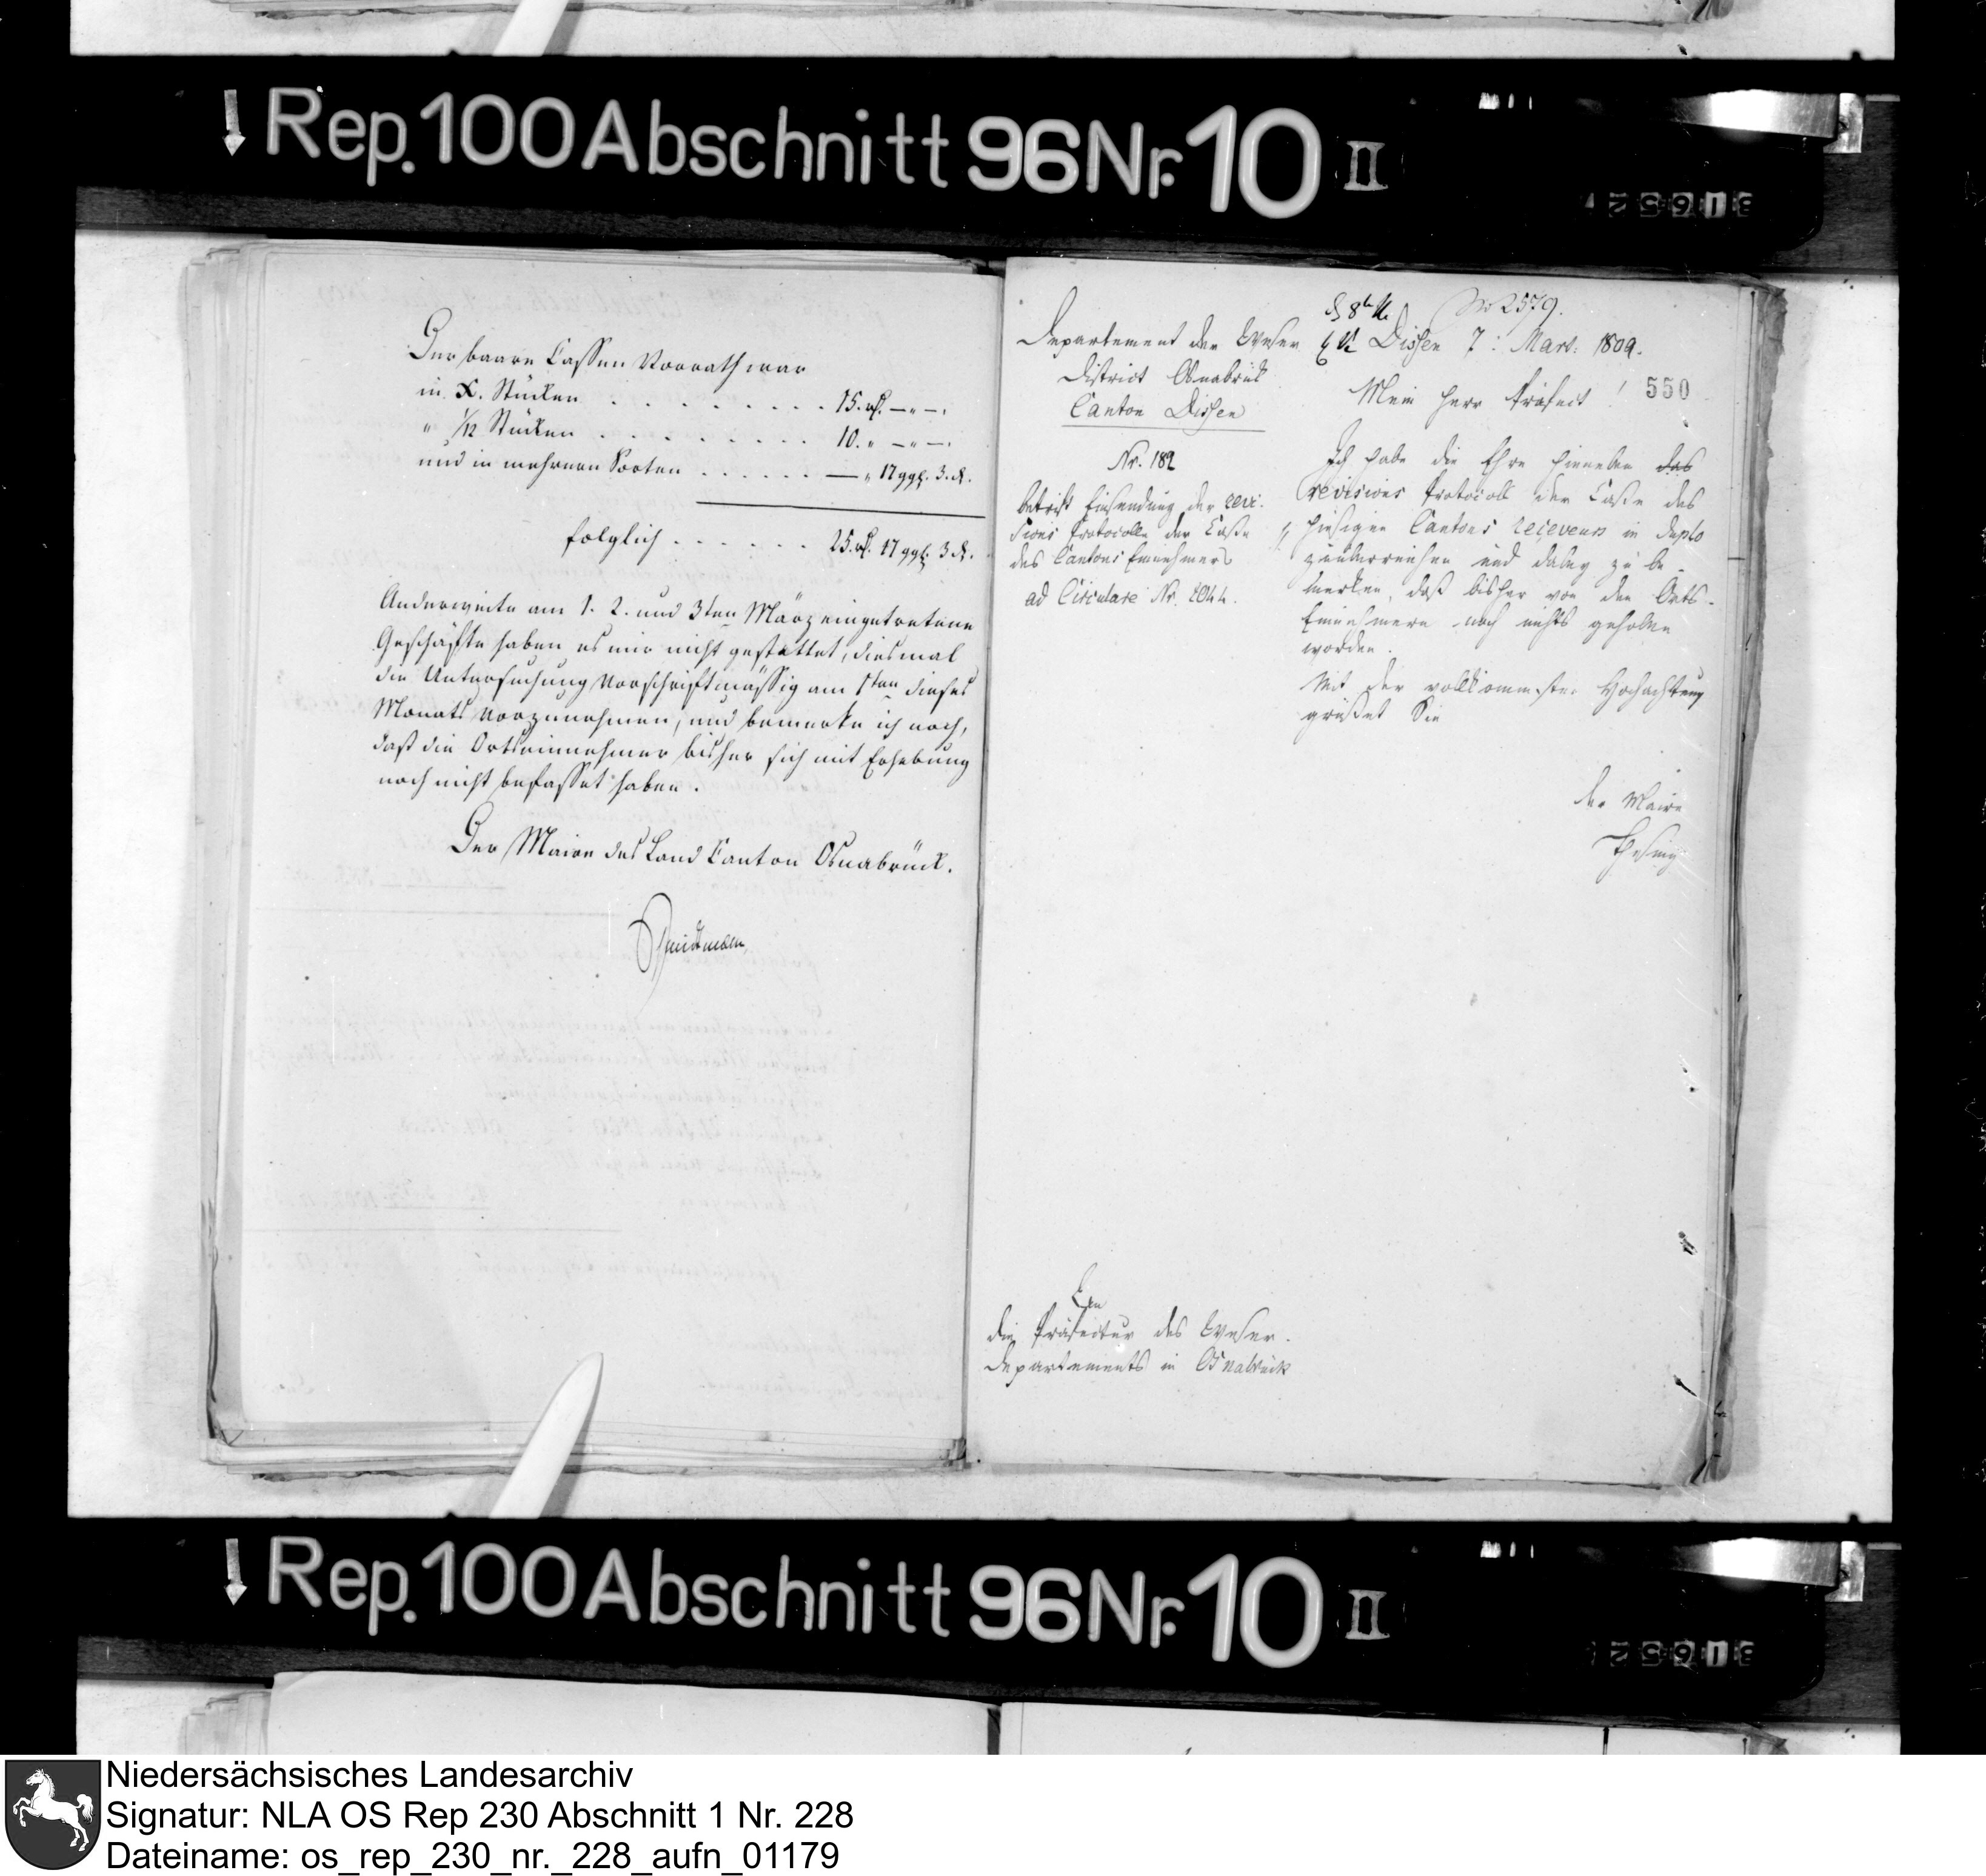 ↓ Rep. 100 Abschnitt 96 Nr. 10 II
31652
Der baare Cassen Vorrath war
in X. Stücken . . . . . . . . 15. rℓ. — „ — .
„ 1/12 Stücken . . . . . . . . 10. „ — „ — .
und in mehrern Sorten . . . . . . — „ 17 ggl. 3. d.
folglich . . . . . . 25. rℓ. 17 ggl. 3 d.
Anderweite am 1. 2. und 3ten März eingetretene
Geschäfte haben es mir nicht gestattet, diesmal
die Untersuchung vorschriftmässig am 1ten dieses
Monats vorzunehmen, und bemerke ich noch,
daß die Ortseinnehmer bisher sich mit Erhebung
noch nicht befasset haben.
Der Maire des Land Canton Osnabrück.
No 2579.
Departement der Weser
District Osnabrück
Canton Dissen
Nr. 182
betrift Einsendung der revi-
sions Protocolle der Casse
des Cantons Einnehmers
ad Circulare Nr. 2044.
Dissen 7: Mart: 1809.
550
Mein Herr Präfect!
Ich habe die Ehre hieneben das
revisions Protocoll der Casse des
hiesigen Cantons receveurs in duplo
zu überreichen und dabey zu be-
merken, daß bisher von den Orts-
Einnehmern noch nichts gehoben
worden.
Mit der vollkommsten Hochachtung
grüßet Sie
der Maire
An
die Präfectur des Weser-
Departements in Osnabrück
↓ Rep. 100 Abschnitt 96 Nr. 10 II
31652
Niedersächsisches Landesarchiv
Signatur: NLA OS Rep 230 Abschnitt 1 Nr. 228
Dateiname: os_rep_230_nr._228_aufn_01179